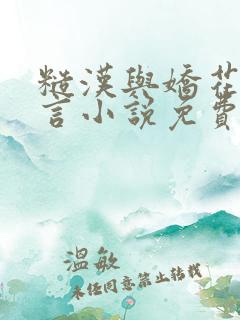 糙漢與嬌花
言小說免費
溫敏
未任同意禁止转载